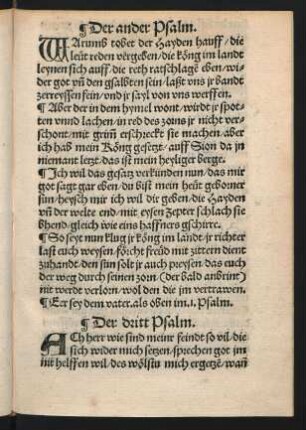 ¶ Der ander Psalm.
WArumb tobet der Hayden hauff / die
leüt reden vergeben / die köng im landt
leynen sich auff / die reth ratschlagẽ eben / wi-
der got vñ den gsalbten sein / laßt vns jr bandt
zerreyssen sein / vnd jr sayl von vns werffen.
¶ Aber der in dem hymel wont / wirdt jr spot-
ten vnnd lachen / in red des zoins jr nicht ver-
schont / mit grim̃ erschreckt sie machen / aber
ich hab mein König gesetzt / auff Sion da jn
niemant letzt / das ist mein heyliger berge.
¶ Ich wil das gesatz verkünden nun / das mir
got sagt gar eben / du bist mein heüt geborner
sun / heysch mir ich wil dir geben / die Hayden
vñ der welte end / mit eysen Zepter schlach sie
bhend / gleich wie eins haffners gschirre.
¶ So seyt nun klug jr köng im landt / jr richter
last euch weysen / förcht freüd mit zittern dient
zuhandt / den sun solt jr auch preysen / das euch
der weg durch seinen zorn (der bald anbrint)
nit werde verlorn / wol den die jm vertrawen.
¶ Eer sey dem vater. als oben im .1. Psalm.
¶ Der dritt Psalm.
ACh herr wie sind meiner feindt so vil / die
sich wider mich setzen / sprechen got jm
nit helffen wil / des wölstu mich ergetzẽ / wañ